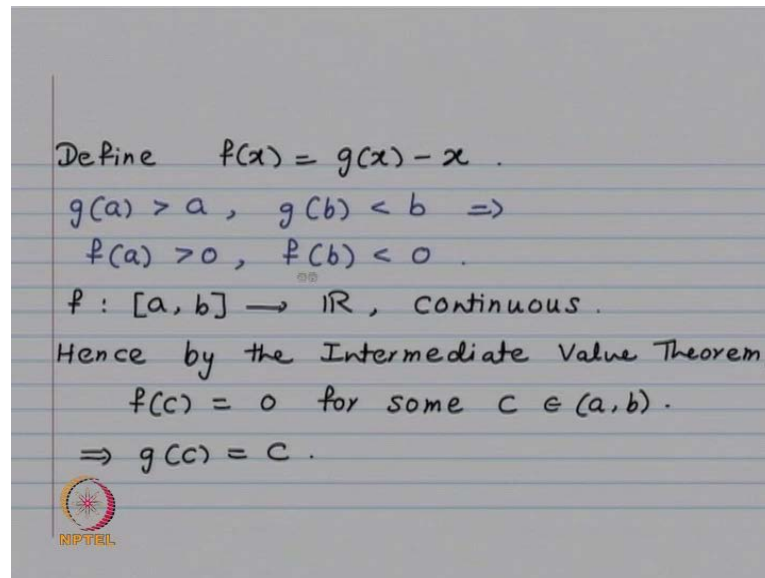 Define f(x) = g(x) - x .
g(a) > a , g(b) < b =>
f(a) > 0 , f(b) < 0 .
f : [a, b] → IR , continuous .
Hence by the Intermediate Value Theorem
f(c) = 0 for some c ∈ (a, b) .
⇒ g(c) = c .
NPTEL